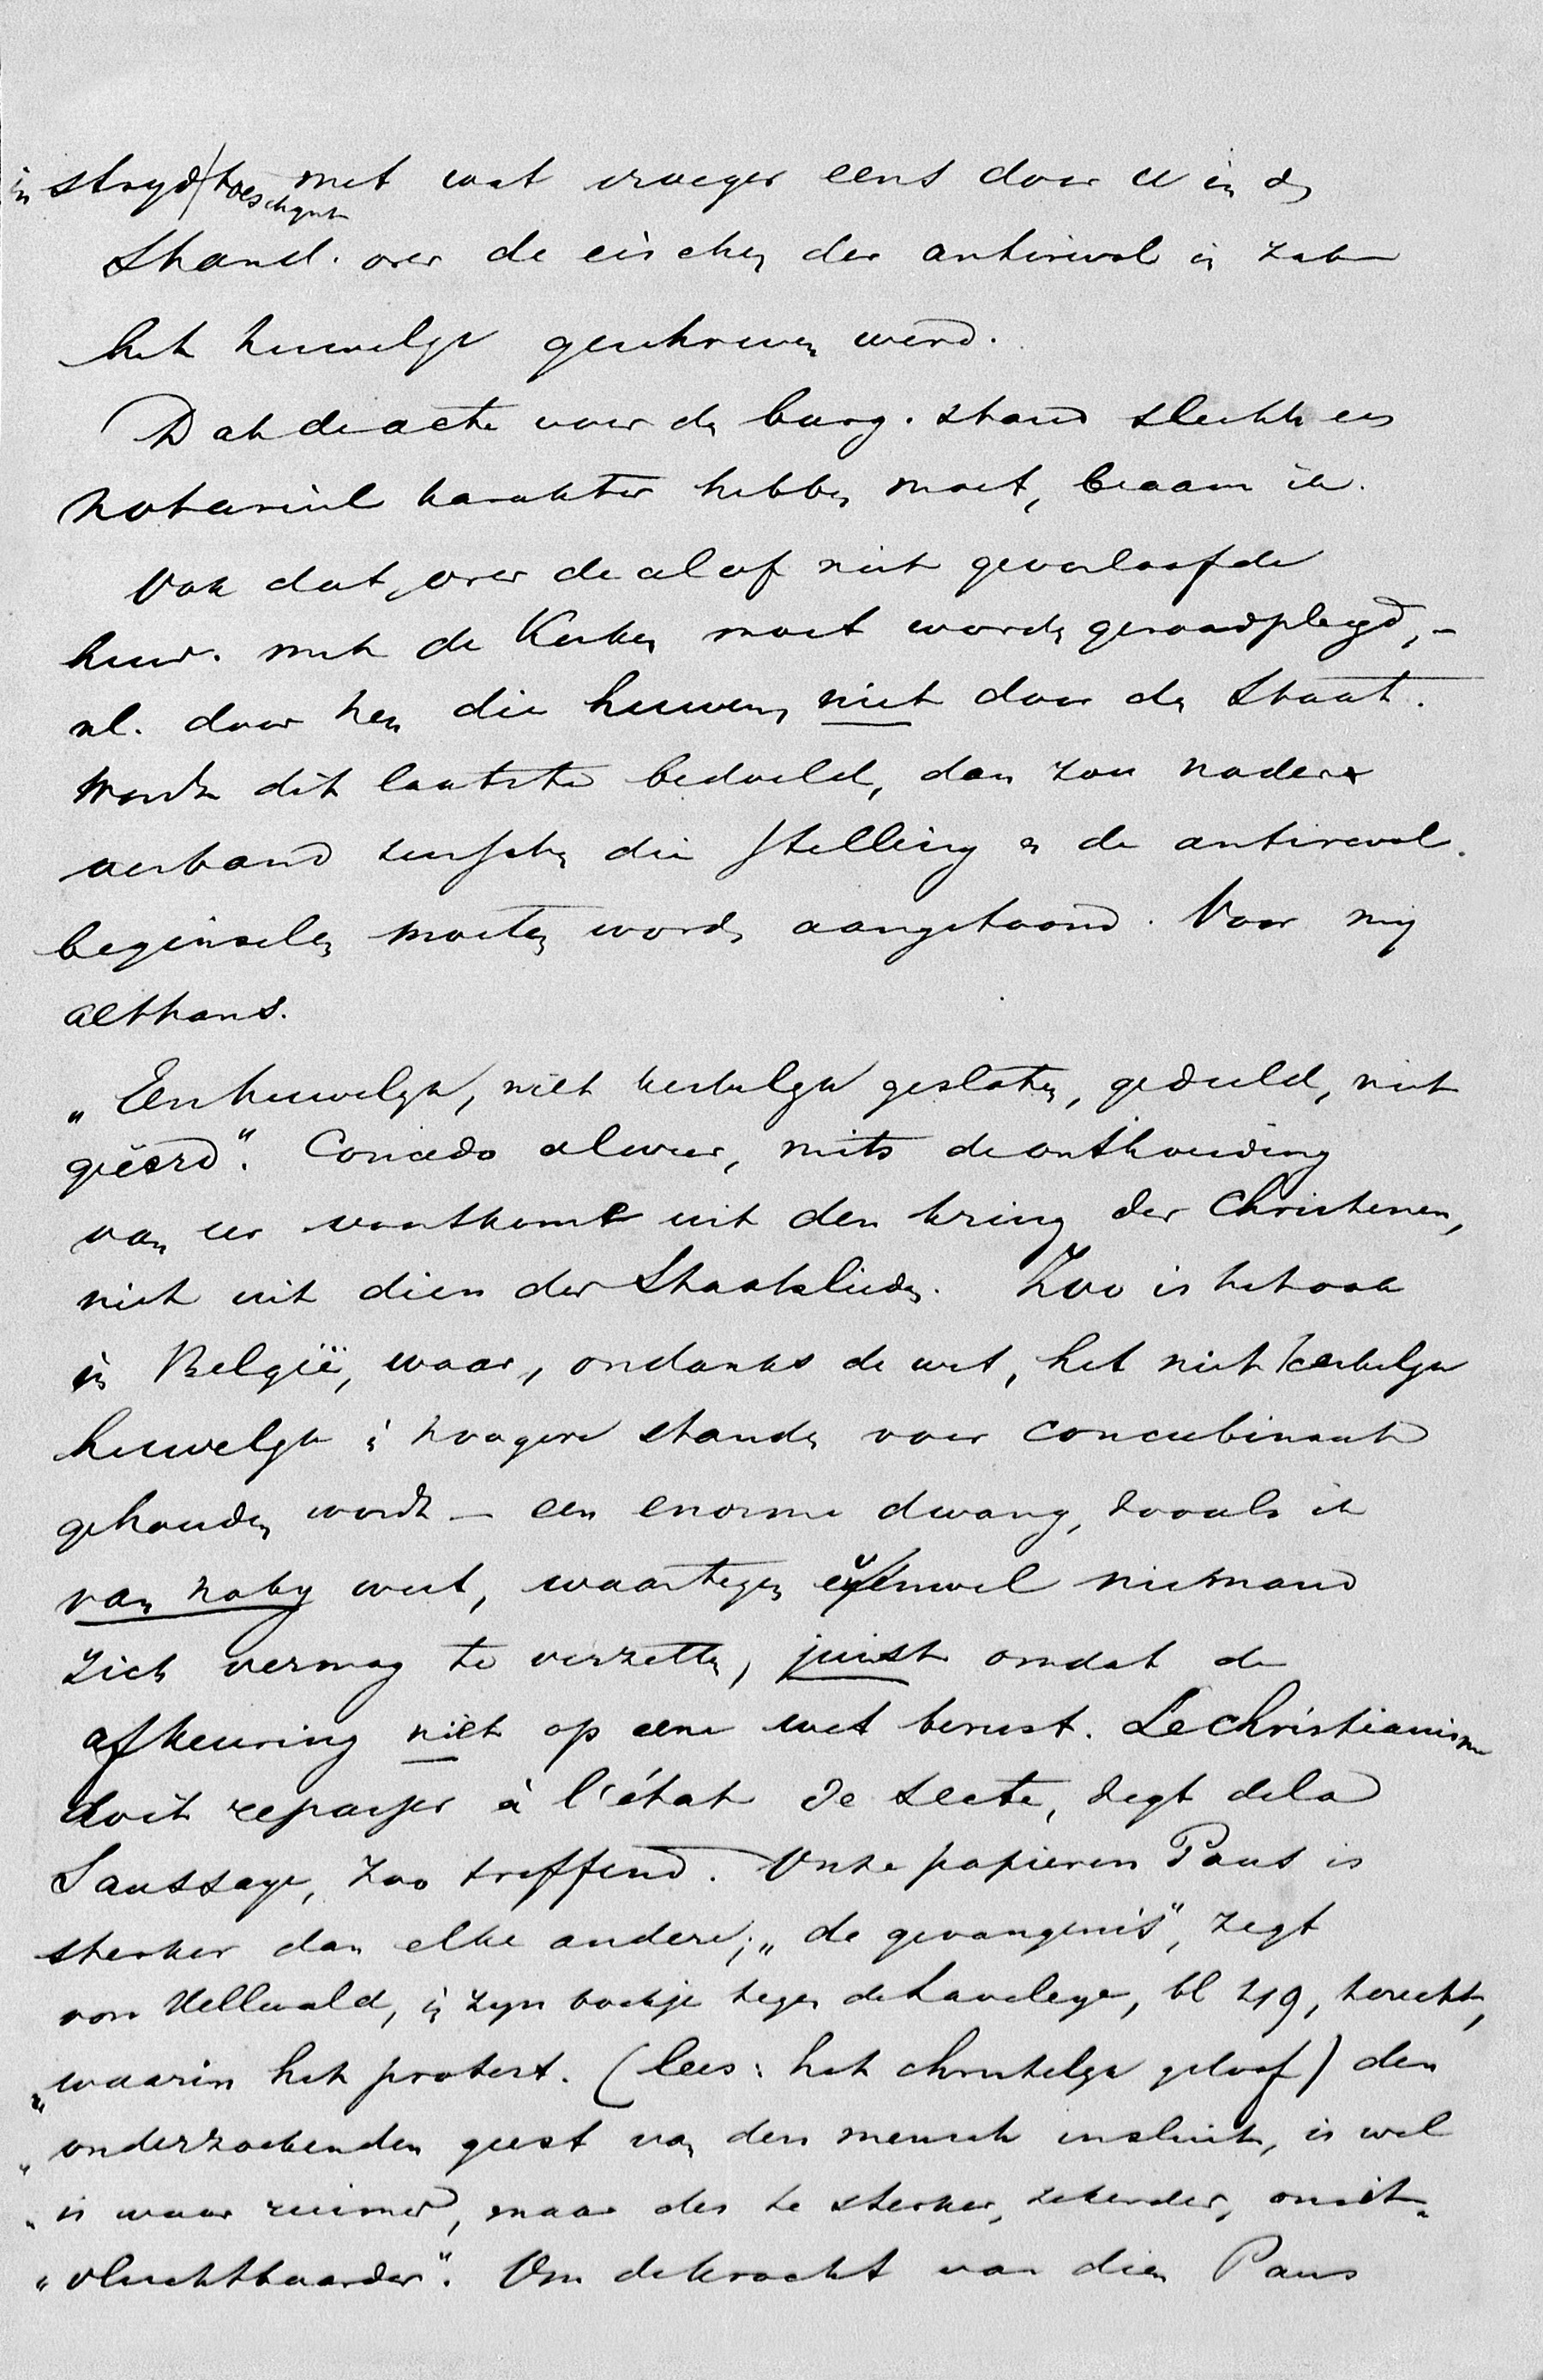 in strijd (toeschijnt met wat vroeger eens door U in de
Stand. over de eischen der antirevol in zake
het huwelijk geschreven werd.
Dat de acte voor den burg. stand slechts een
notariëel karakter hebben moet, beaam ik.
Ook dat over de al of niet geoorloofde
huw. met de Kerken moet worden geraadpleegd, –
nl. door hen die huwen, niet door den Staat.
Wordt dit laatste bedoeld, dan zou nader
verband tusschen die stelling en de antirevol.
beginselen moeten worden aangetoond. Voor mij
althans.
„Een huwelijk, niet kerkelijk gesloten, geduld, niet
geëerd". Concedo alweer, mits de onthouding
van eer voortkome uit den kring der Christenen,
niet uit dien der Staatslieden. Zoo is het ook
in België, waar, ondanks de wet, het niet kerkelijk
huwelijk in hoogere standen voor concubinaat
gehouden wordt – een enorme dwang, zooals ik
van naby weet, waartegen evenwel niemand
zich vermag te verzetten, juist omdat de
afkeuring niet op eene wet berust. Le Christianisme
doit repasser à l'état de secte, zegt de la
Saussaye, zoo treffend. Onze papieren Paus is
sterker dan elke andere; „de gevangenis", zegt
von Hellwald, in zijn boekje tegen de Laveleye, bl 249, terecht,
„waarin het protest. (lees: het christelijk geloof) den
„onderzoekenden geest van den mensch insluit, is wel
„is waar ruimer, maar des te sterker, zekerder, onuit-
„vluchtbaarder". Om de kracht van dien Paus